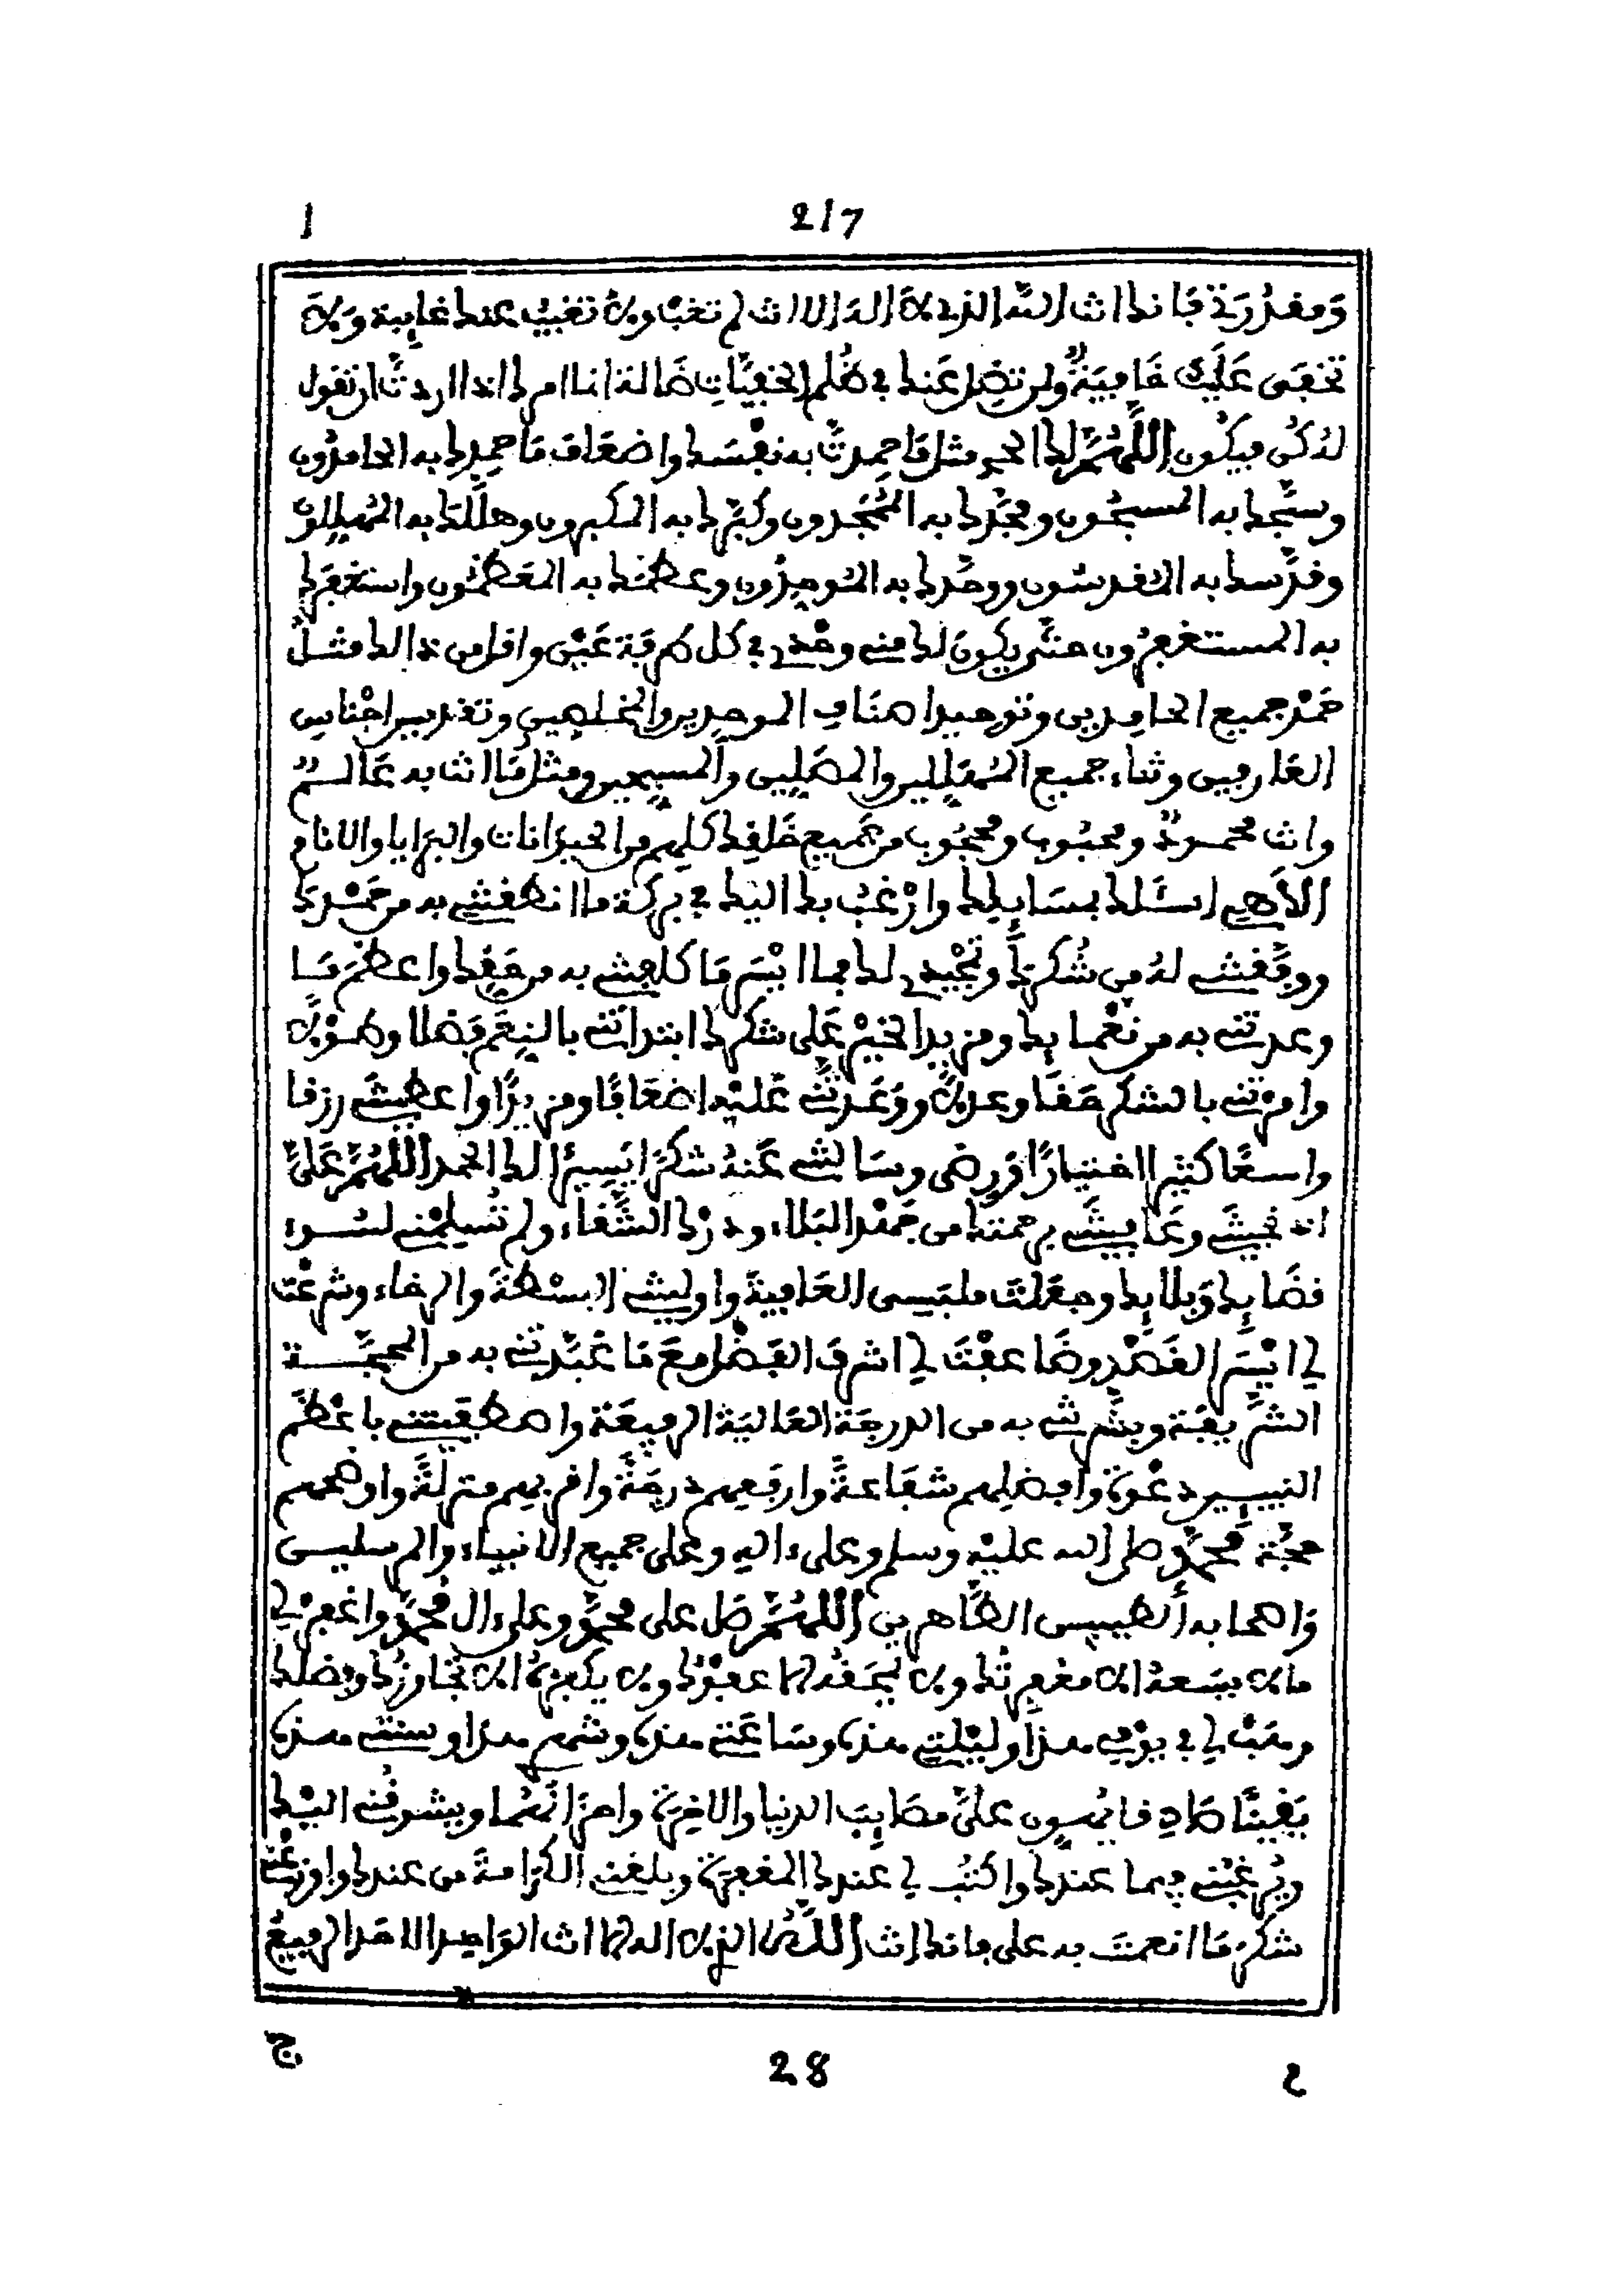 ا 217
ومقدرة فانك انت الله الذي لا اله الا انت لم تغب ولا تغيب عنك غايبة ولا
تخفى عليك خافية ولن تضل عنك في ظلم الخفيات ضالة انما امرك اذا اردت ان تقول
له كن فيكون اللهم لك الحمد مثل ما حمدت به نفسك واضعاف ما حمدك به الحامدون
وسبحك به المسبحون ومجدك به الممجدون وكبرك به المكبرون وهللك به المهللون
وقدسك به المقدسون ووحدك به الموحدون وعظمك به المعظمون واستغفرك
به المستغفرون حتى يكون لك مني وحدي في كل طرفة عين واقل من ذالك مثل
حمد جميع الحامدين وتوحيد اصناف الموحدين والمخلصين وتقديس اجناس
العارفين وثناء جميع المهللين والمصلين والمسبحين ومثل ما انت به عالم
وانت محمود ومحبوب ومحجوب من جميع خلقك كلهم من الحيوانات والبرايا والانام
الاهي اسئلك بمسايلك وارغب بك اليك في بركة ما انطقتني به من حمدك
ووفقتني له من شكرك وتمجيدي لك فما ايسر ما كلفتني به من حقك واعظم ما
وعدتني به من نعمايك ومزيد الخير على شكرك ابتداتني بالنعم فضلا وطولا
وامرتني بالشكر حقا وعدلا ووعدتني عليه اضعافا ومزيدا واعطيتني رزقا
واسعا كثيرا اختيارا ورضى وسالتني عنه شكرا يسيرا لك الحمد اللهم علي
اذ نجيتني وعافيتني برحمتك من جهد البلاء ودرك الشقاء ولم تسلمني لسوء
قضايك وبلايك وجعلت ملبسي العافية واوليتني البسطة والرخاء وشرعت
لي ايسر القصد وضاعفت لي اشرف الفضل مع ما عبدتني به من المحجة
الشريفة وبشرتني به من الدرجة العالية الرفيعة واصطفيتني باعظم
النبيين دعوة وافضلهم شفاعة وارفعهم درجة واقربهم منزلة واوضحهم
حجة محمد صلى الله عليه وسلم وعلى ءاله وعلى جميع الانبياء والمرسلين
واصحابه الطيبين الطاهرين اللهم صل على محمد وعلى ءال محمد واغفر لي
ما لا يسعه الا مغفرتك ولا يمحقه الا عفوك ولا يكفره الا تجاوزك وفضلك
وهب لي في يومي هذا وليلتي هذه وساعتي هذه وشهري هذا وسنتي هذه
يقينا صادقا يهون علي مصايب الدنيا والاخرة واحزانهما ويشوقني اليك
ويرغبني فيما عندك واكتب لي عندك المغفرة وبلغني الكرامة من عندك واوزعني
شكر ما انعمت به علي فانك انت الله الذي لا اله الا انت الواحد الاحد الرفيع
ج 28 2